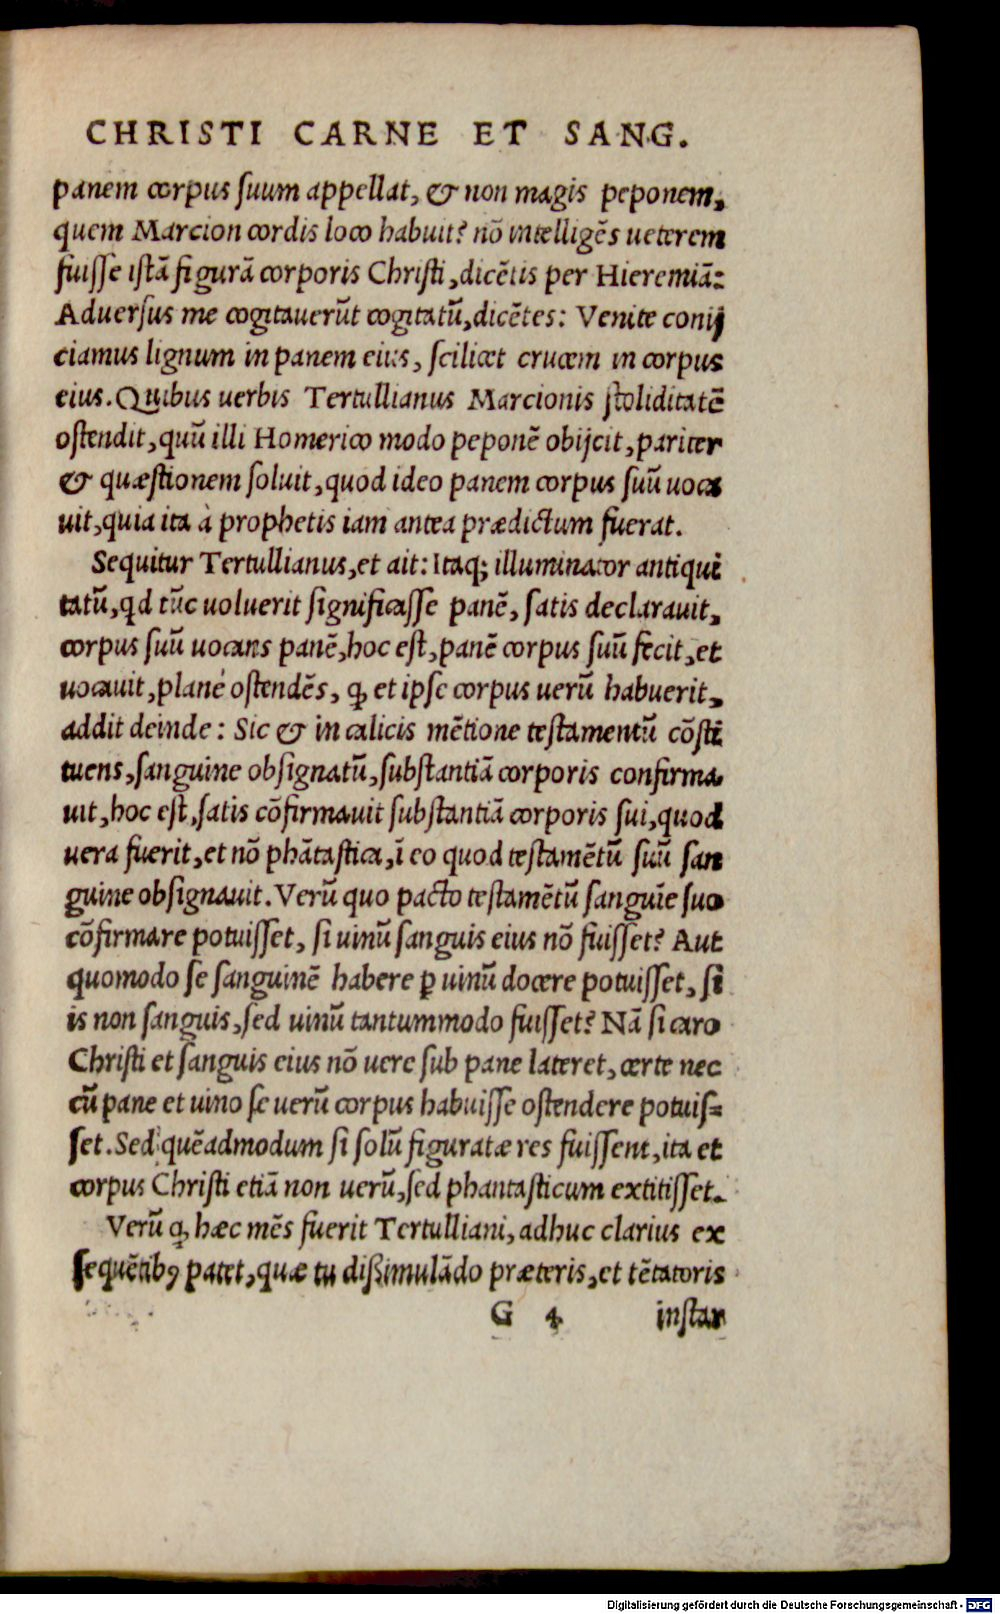 CHRISTI CARNE ET SANG.
panem corpus suum appellat, & non magis peponem,
quem Marcion cordis loco habuit? nō intelligēs ueterem
fuisse istā figurā corporis Christi, dicētis per Hieremiā:
Aduersus me cogitauerūt cogitatū, dicētes: Venite conij
ciamus lignum in panem eius, scilicet crucem in corpus
eius. Quibus uerbis Tertullianus Marcionis stoliditatē
ostendit, quū illi Homerico modo peponē obijcit, pariter
& quæstionem soluit, quod ideo panem corpus suū uoca
uit, quia ita à prophetis iam antea prædictum fuerat.
Sequitur Tertullianus, et ait: Itaq; illuminator antiqui
tatū, qd tūc uoluerit significasse panē, satis declarauit,
corpus suū uocans panē, hoc est, panē corpus suū fecit, et
uocauit, planè ostendēs, ꝙ et ipse corpus uerū habuerit,
addit deinde: Sic & in calicis mētione testamentū cōsti
tuens, sanguine obsignatū, substantiā corporis confirma
uit, hoc est, satis cōfirmauit substantiā corporis sui, quod
uera fuerit, et nō phātastica, ī eo quod testamētū suū san
guine obsignauit. Verū quo pacto testamētū sanguīe suo
cōfirmare potuisset, si uinū sanguis eius nō fuisset? Aut
quomodo se sanguinē habere ꝑ uinū docere potuisset, si
is non sanguis, sed uinū tantummodo fuisset? Nā si caro
Christi et sanguis eius nō uere sub pane lateret, certe nec
cū pane et uino se uerū corpus habuisse ostendere potuis=
set. Sed quēadmodum si solū figuratæ res fuissent, ita et
corpus Christi etiā non uerū, sed phantasticum extitisset.
Verū ꝙ hæc mēs fuerit Tertulliani, adhuc clarius ex
sequētibꝰ patet, quæ tu dissimulādo præteris, et tētatoris
G 4 instar
Digitalisierung gefördert durch die Deutsche Forschungsgemeinschaft - DFG